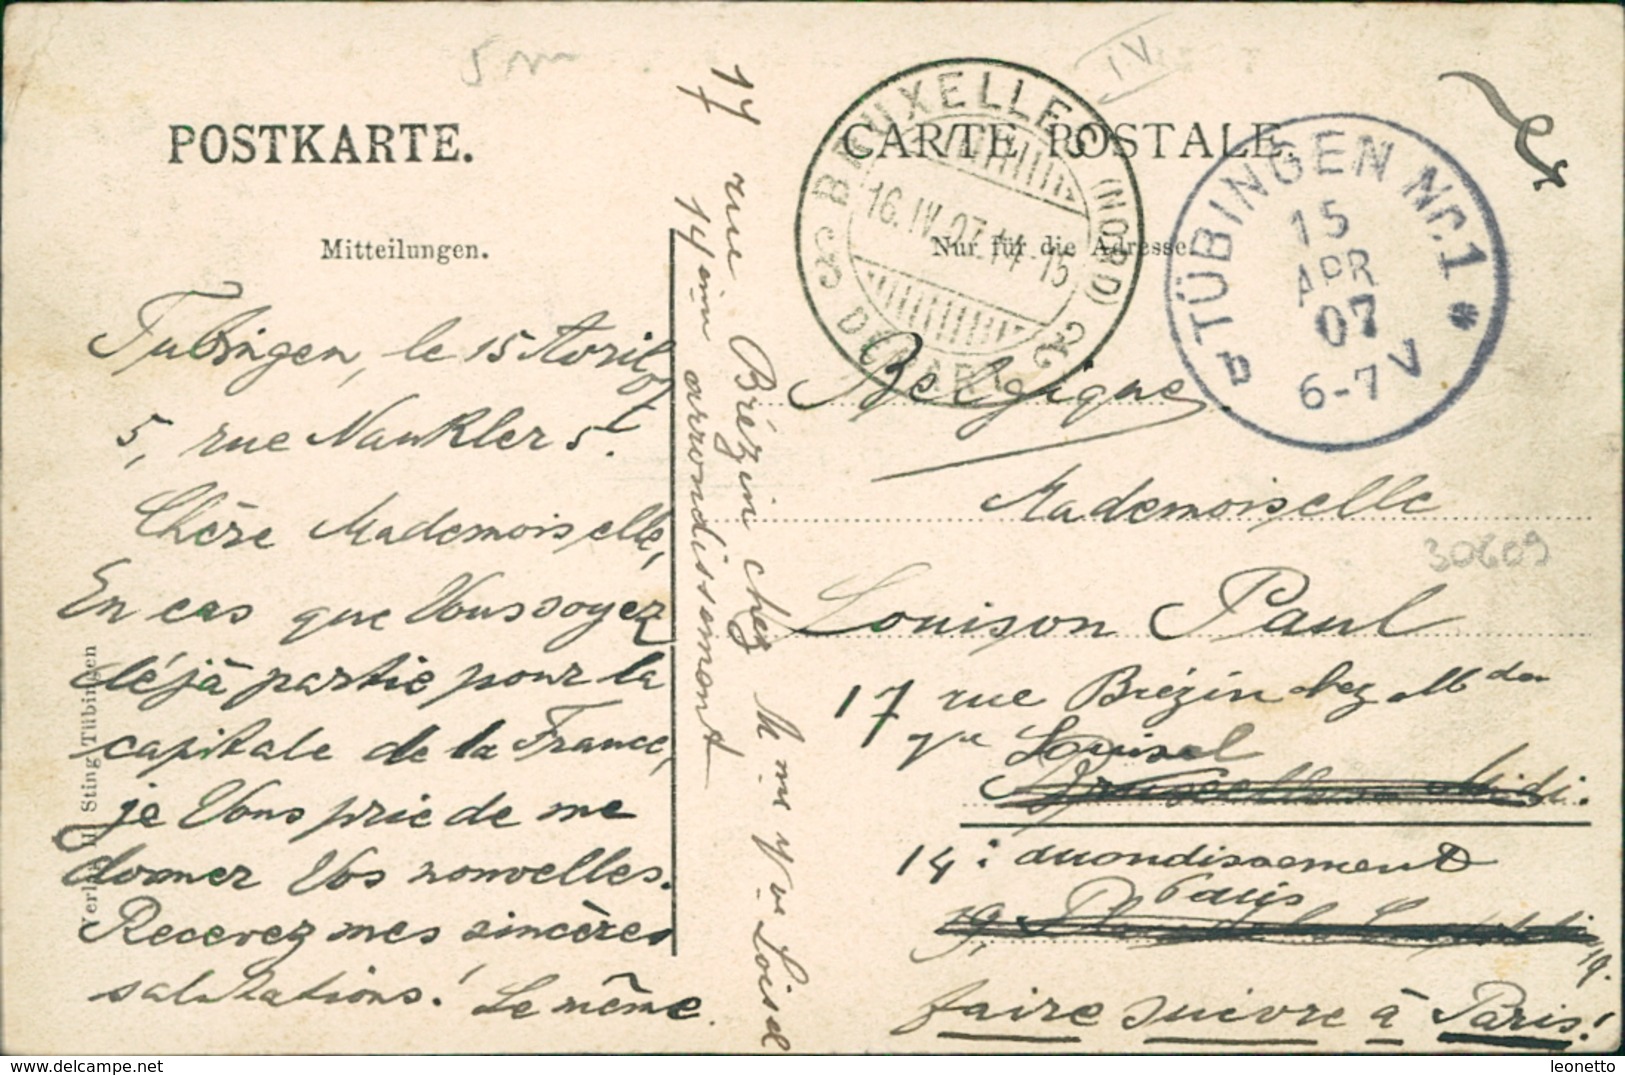 5 m
I.V.
POSTKARTE.
CARTE POSTALE.
Mitteilungen.
Nur für die Adresse.
BRUXELLES (NORD)
16. IV. 07. 14-15
DEPART
TÜBINGEN Nr. 1 *
15
APR
07
6-7 V
Tubingen, le 15 Avril 07
5, rue Naukler st.
Chère Mademoiselle,
En cas que Vous soyez
déjà partie pour la
capitale de la France,
je Vous prie de me
donner Vos nouvelles.
Recevez mes sincères
salutations! Le même.
Verlag H. Sting Tübingen
17 rue Brézin chez Mme Vve Loisel
14 eim arrondissement
Belgique
Mademoiselle
30609
Louison Paul
17 rue Brézin chez
Loisel
Bruxelles - Midi.
14: arrondissement
Paris
19,
19.
faire suivre à Paris!
leonetto